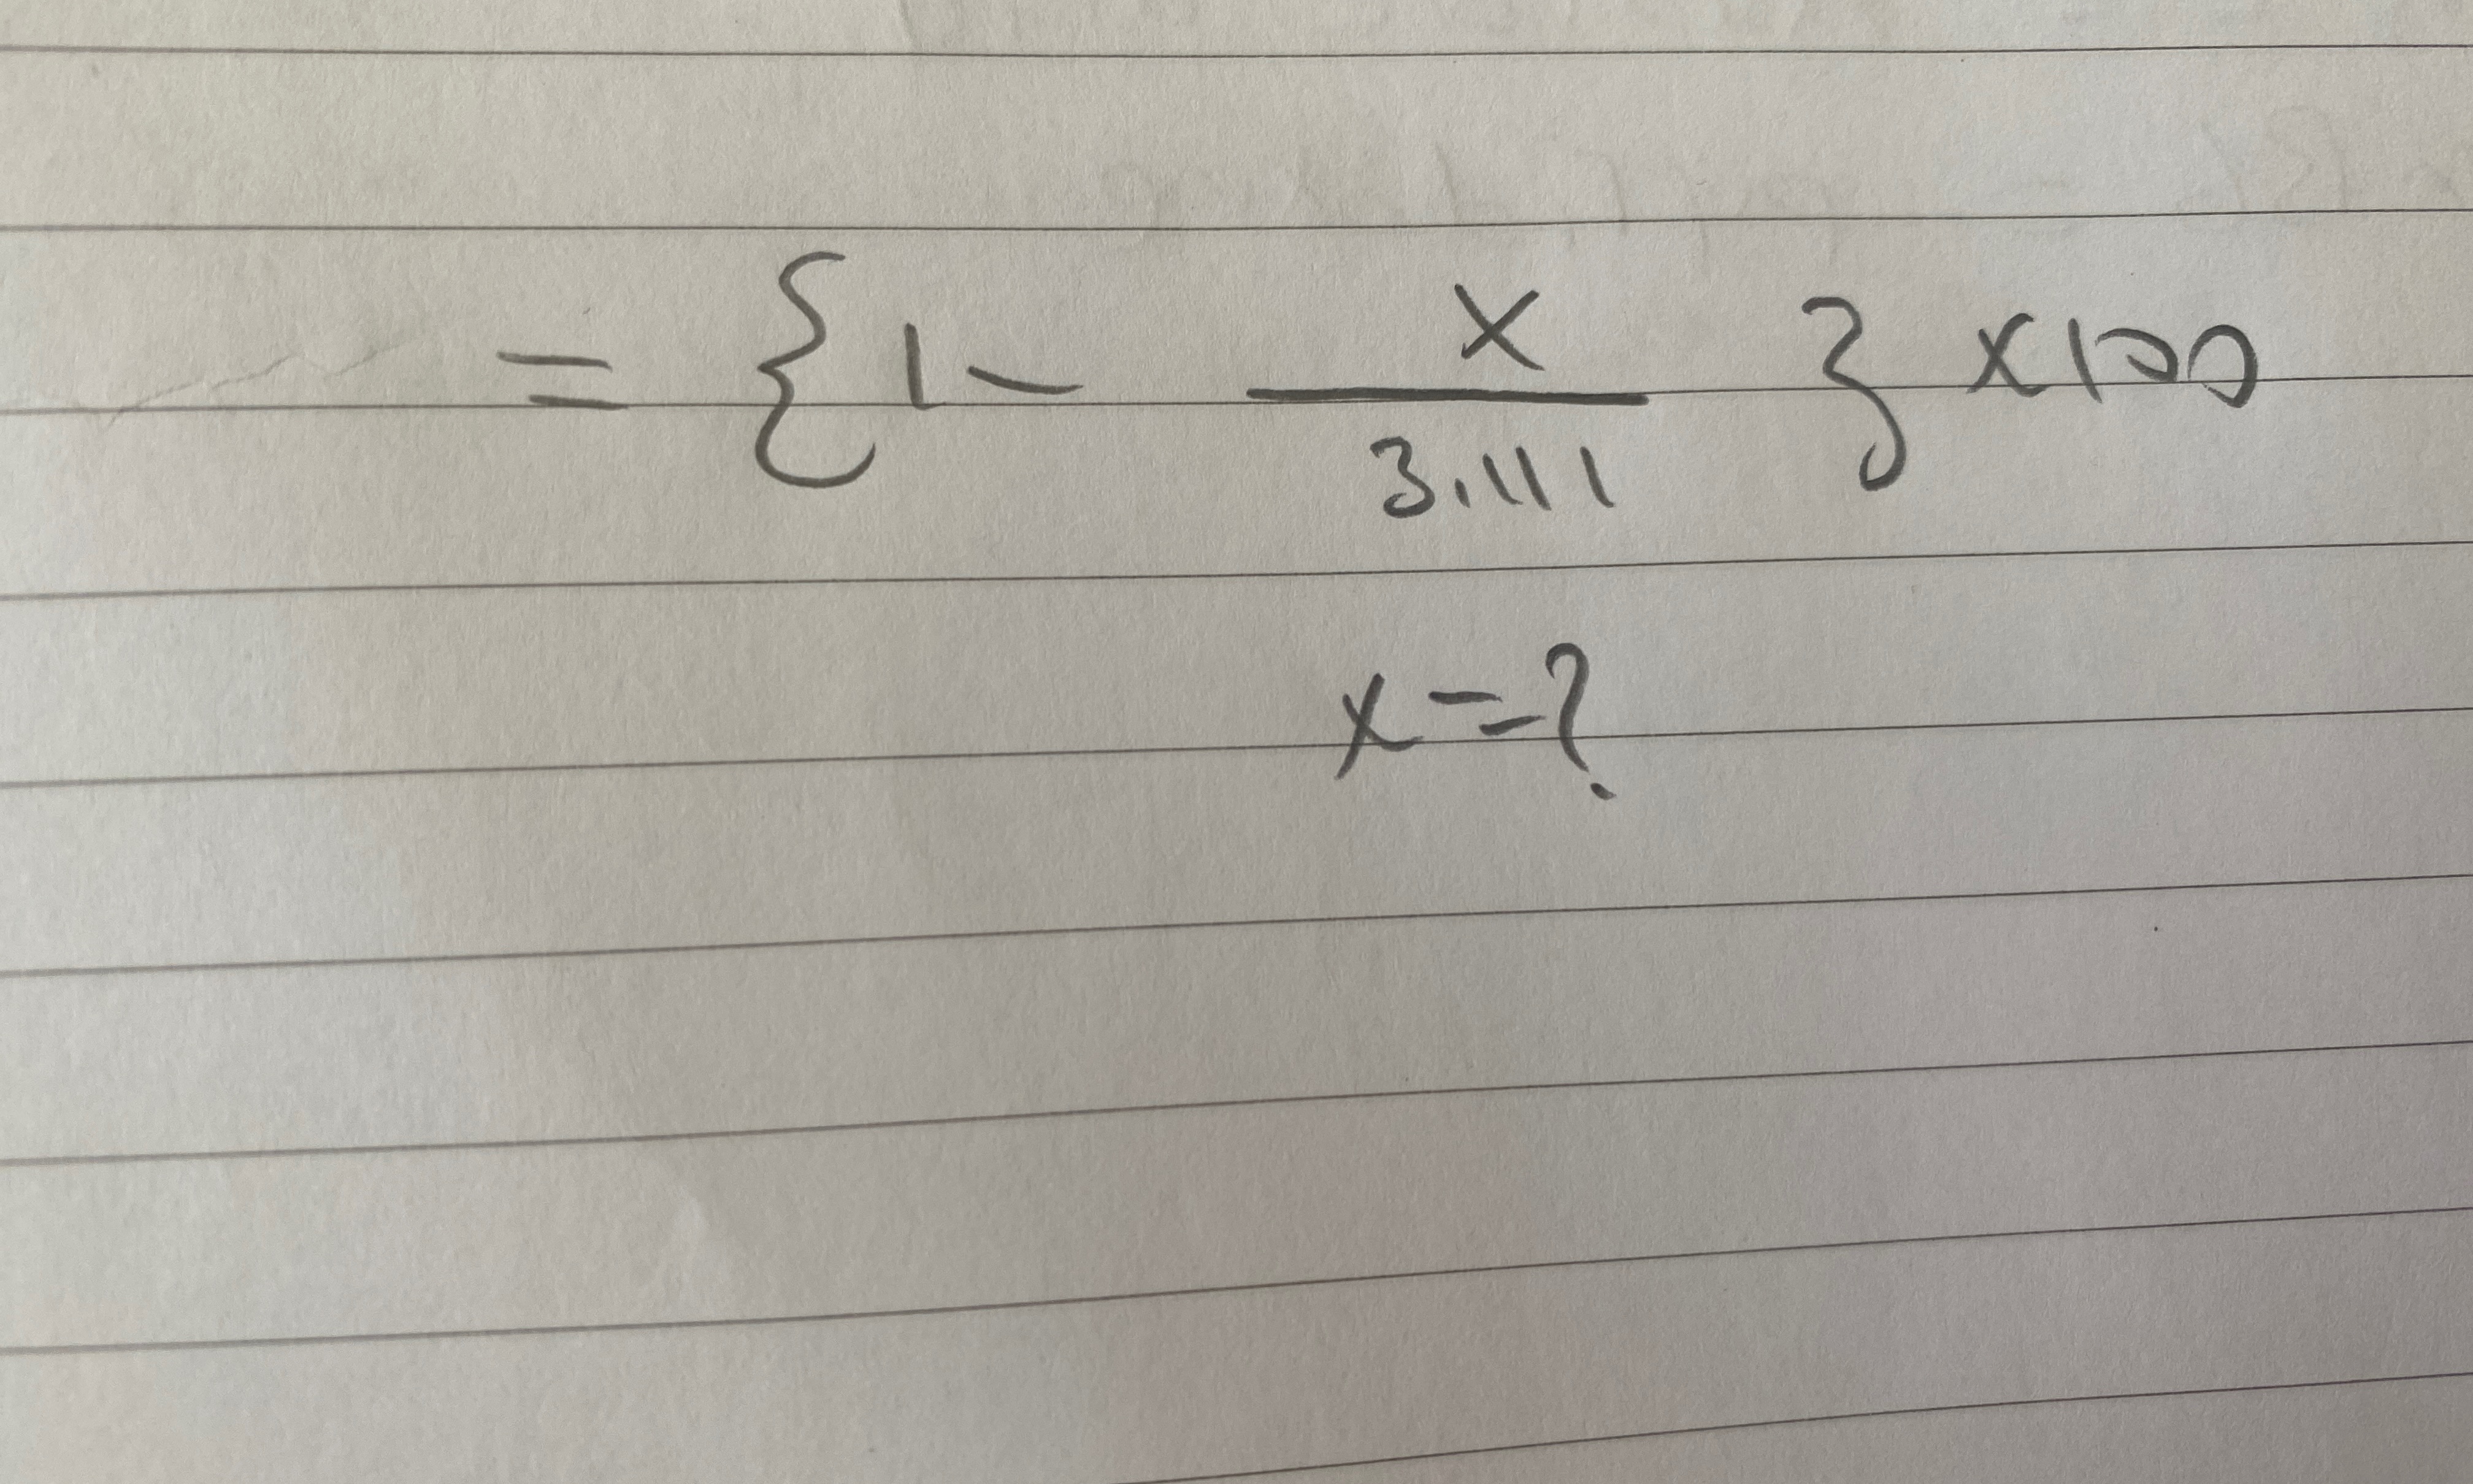 = {1 - x / 3.111} x100
x = ?